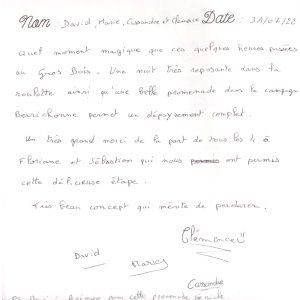 Nom : David, Marie, Cassandre et Clémence Date : 31/07/22
Quel moment magique que ces quelques heures passées
au Gros Bois. Une nuit très reposante dans la
roulotte ainsi qu'une belle promenade dans la campagne
Berrichonne permet un dépaysement complet.
Un très grand merci de la part de tous les 4 à
Floriane et Sébastien qui nous ont permis
cette délicieuse étape.
Très beau concept qui mérite de perdurer.
Clémence
David
Marie
Cassandre
pour cette promenade